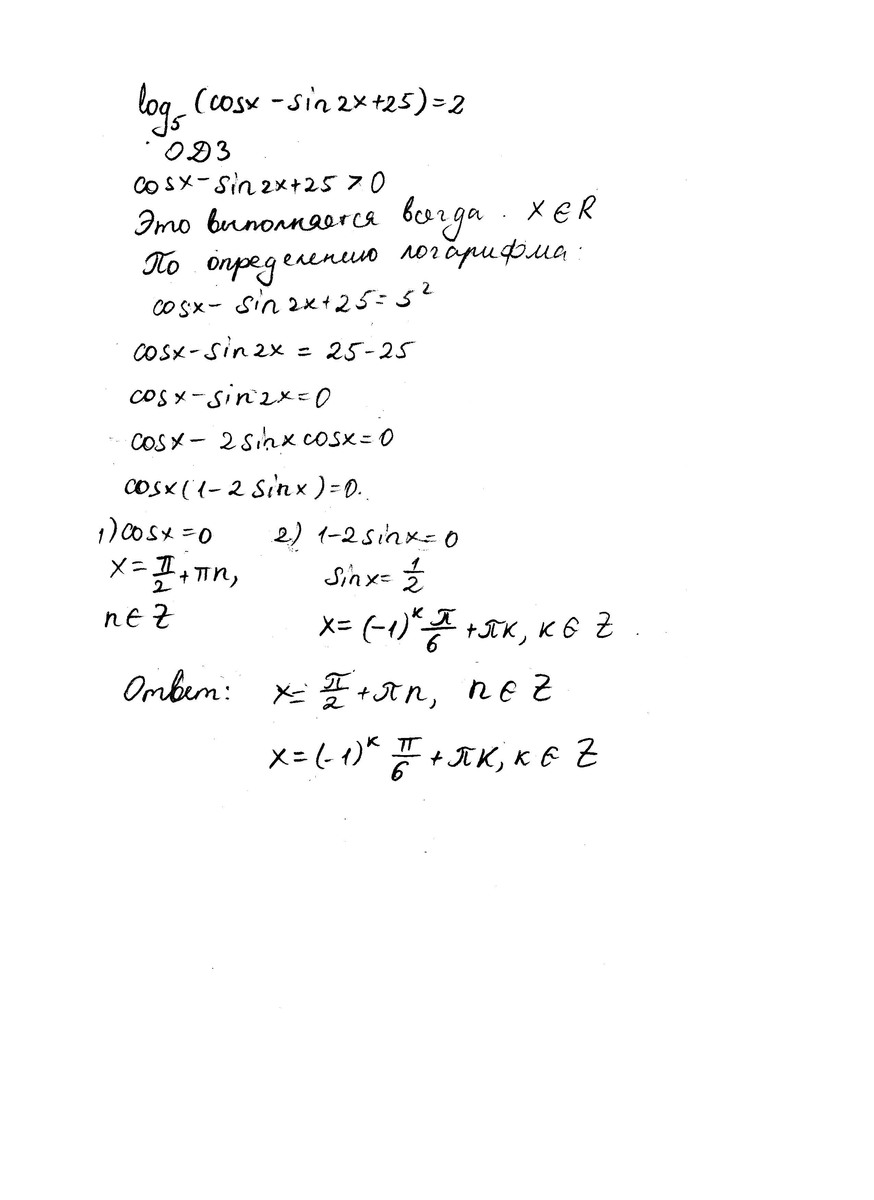 log₅ (cosx - sin2x+25)=2
ОДЗ
cosx - sin2x+25 > 0
Это выполняется всегда. X ∈ R
По определению логарифма:
cosx - sin2x+25 = 5²
cosx - sin2x = 25-25
cosx - sin2x=0
cosx - 2sinxcosx=0
cosx(1-2sinx)=0.
1) cosx=0 2) 1-2sinx=0
x=π/2+πn, sinx=1/2
n ∈ Z x=(-1)ᵏ π/6 +πk, k ∈ Z.
Ответ: x= π/2 +πn, n ∈ Z
x=(-1)ᵏ π/6 +πk, k ∈ Z